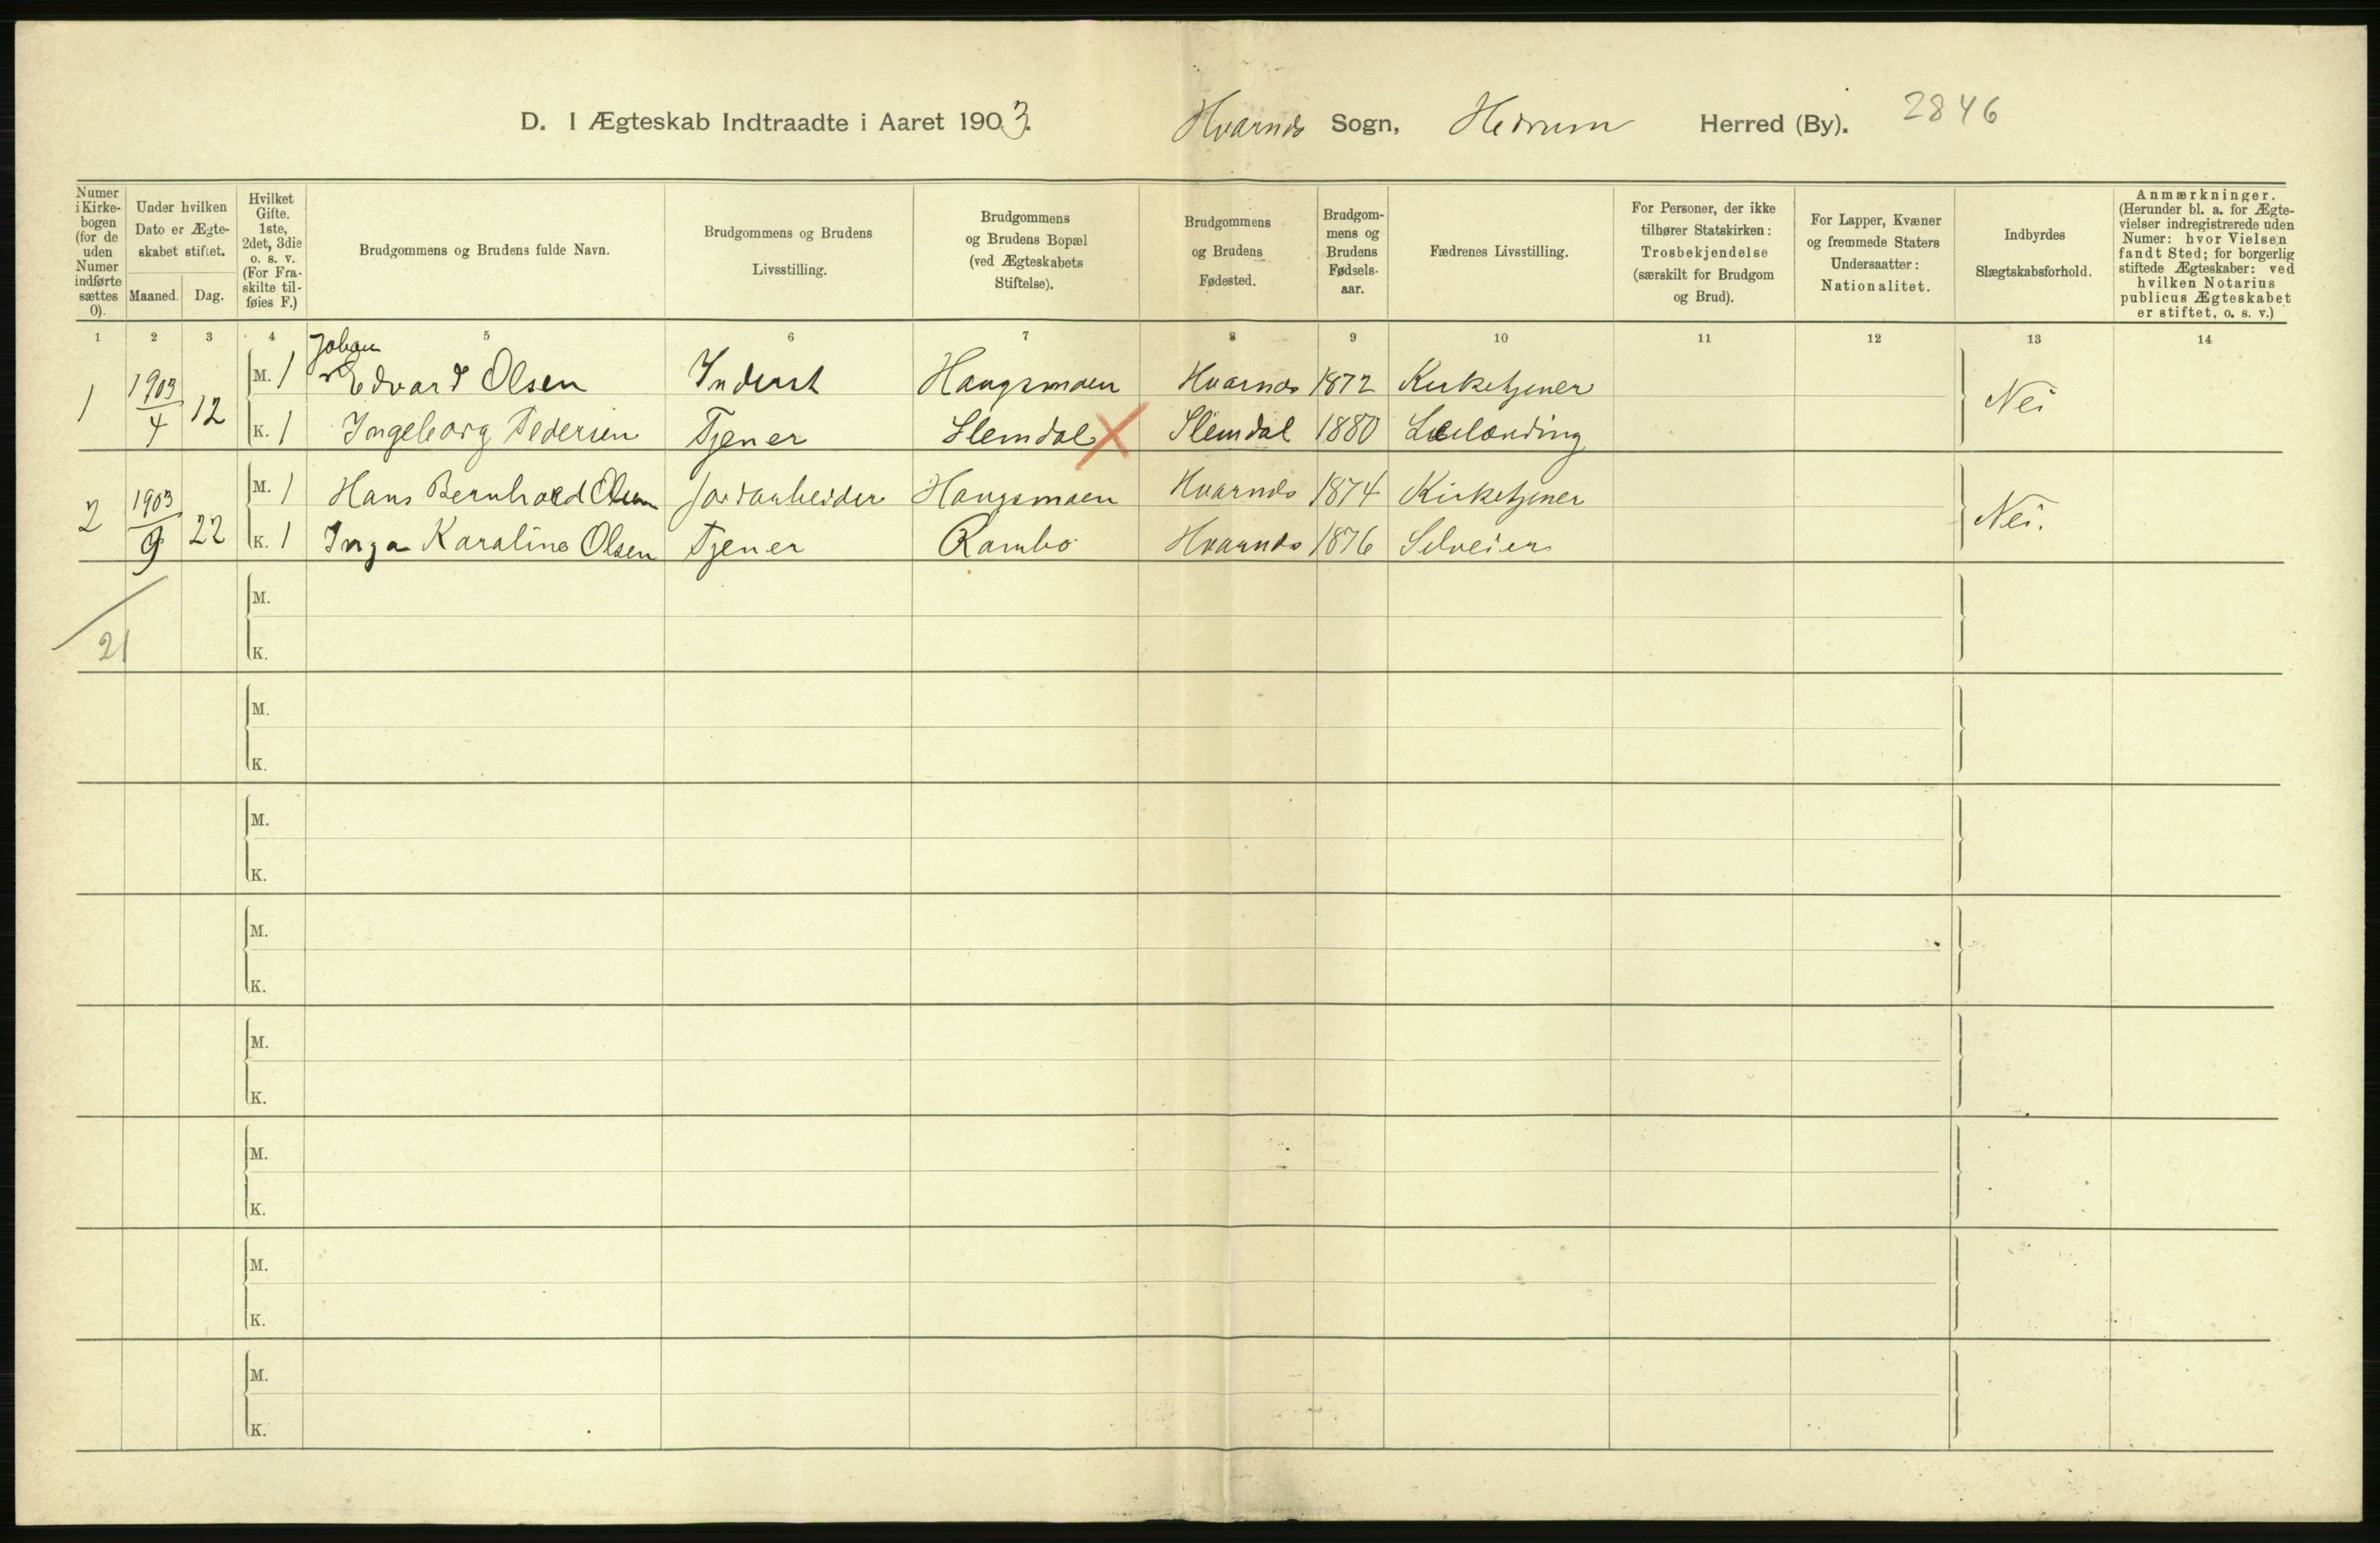 D. I Ægteskab Indtraadte i Aaret 1903. Hvarnes Sogn, Hedrum Herred (By). 2846
Numer i Kirke-bogen (for de uden Numer indførte sættes 0).
Under hvilken Dato er Ægte-skabet stiftet.
Maaned. Dag.
Hvilket Gifte. 1ste, 2det, 3die o. s. v. (For Fra-skilte til-føies F.)
Brudgommens og Brudens fulde Navn.
Brudgommens og Brudens Livsstilling.
Brudgommens og Brudens Bopæl (ved Ægteskabets Stiftelse).
Brudgommens og Brudens Fødested.
Brudgom-mens og Brudens Fødsels-aar.
Fædrenes Livsstilling.
For Personer, der ikke tilhører Statskirken: Trosbekjendelse (særskilt for Brudgom og Brud).
For Lapper, Kvæner og fremmede Staters Undersaatter: Nationalitet.
Indbyrdes Slægtskabsforhold.
Anmærkninger. (Herunder bl. a. for Ægte-vielser indregistrerede uden Numer: hvor Vielsen fandt Sted; for borgerlig stiftede Ægteskaber: ved hvilken Notarius publicus Ægteskabet er stiftet, o. s. v.)
1 2 3 4 5 6 7 8 9 10 11 12 13 14
Johan
1 1903/4 12 M. 1 Edvard Olsen Inderst Haugsmoen Hvarnes 1872 Kirketjener Nei
K. 1 Ingeborg Pedersen Tjener Slemdal X Slemdal 1880 Leilænding
2 1903/9 22 M. 1 Hans Bernhard Olsen Jordarbeider Haugsmoen Hvarnes 1874 Kirketjener Nei.
K. 1 Inga Karoline Olsen Tjener Rambo Hvarnes 1876 Selveier
M.
21
K.
M.
K.
M.
K.
M.
K.
M.
K.
M.
K.
M.
K.
M.
K.